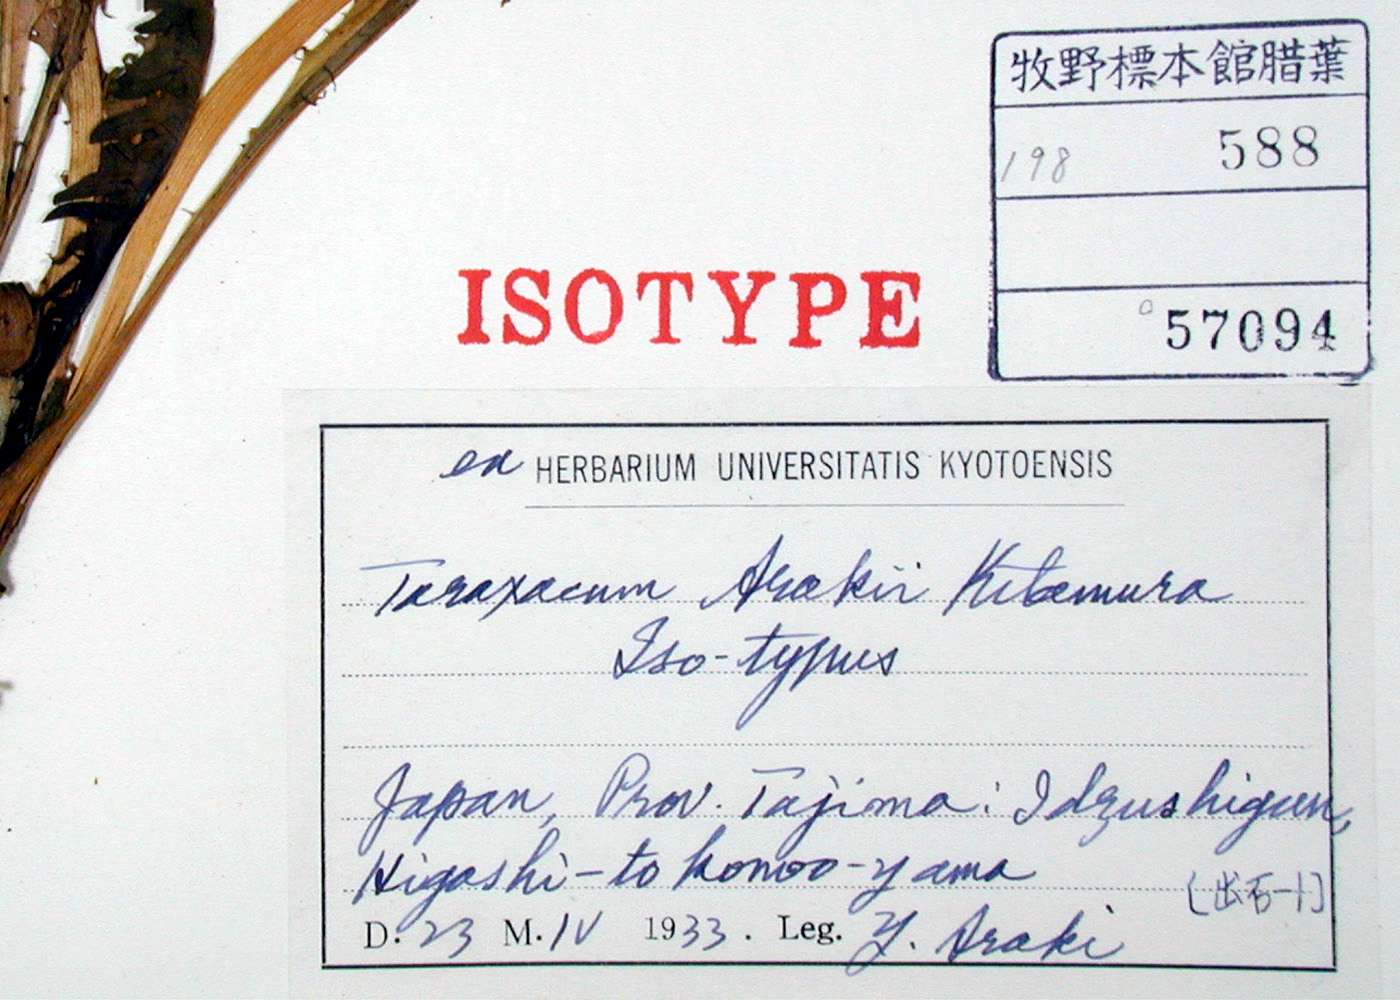 牧野標本館腊葉
198 588
57094
ISOTYPE
ex HERBARIUM UNIVERSITATIS KYOTOENSIS
Taraxacum Arakii Kitamura
Iso-typus
Japan, Prov. Tajima: Idzushigun,
Higashi-tokonoo-yama
[出石-1]
D. 23 M. IV 1933. Leg. Y. Araki